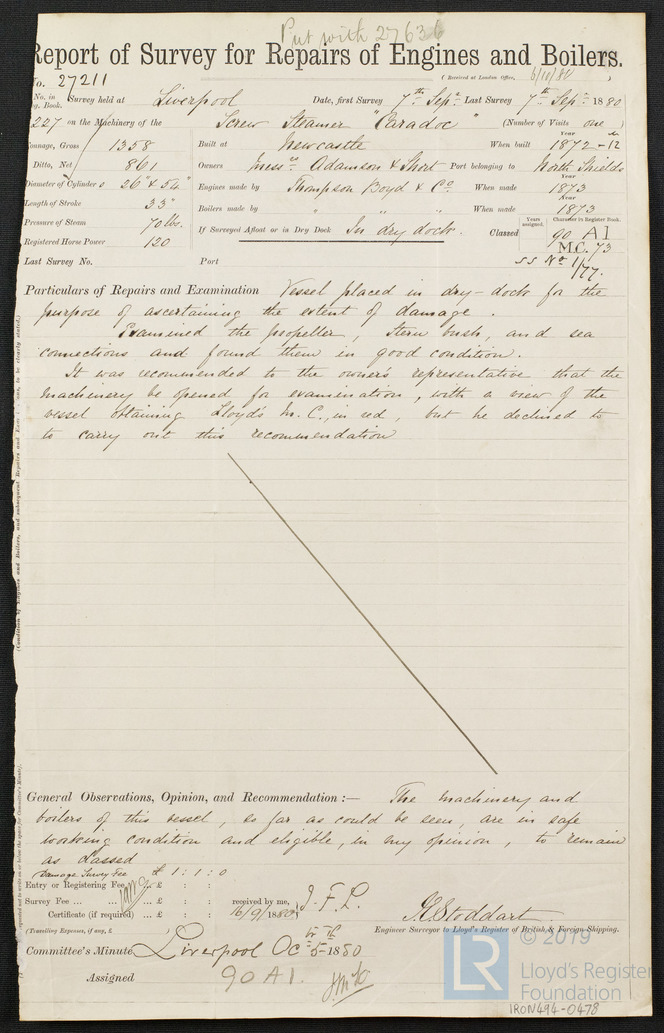 Put with 27636
Report of Survey for Repairs of Engines and Boilers.
No. 27211 (Received at London Office, 6/10/80 )
No. in Reg. Book. Survey held at Liverpool Date, first Survey 7th Sepr Last Survey 7th Sepr 1880
227 on the Machinery of the Screw Steamer "Caradoc" (Number of Visits one )
Tonnage, Gross 1358 Built at Newcastle When built Year 1872-12
Ditto, Net 861 Owners Messrs Adamson & Short Port belonging to North Shields
Diameter of Cylinders 26" & 54" Engines made by Thompson Boyd & Co When made Year 1873
Length of Stroke 33" Boilers made by " " " When made Year 1873
Pressure of Steam 70 lbs. If Surveyed Afloat or in Dry Dock In dry dock. Classed Years assigned. 90 Character in Register Book. A1
Registered Horse Power 120 M.C. 73
Last Survey No. Port SS No 1/77.
Particulars of Repairs and Examination Vessel placed in dry-dock for the
purpose of ascertaining the extent of damage.
Examined the propeller, stern bush, and sea
connections and found them in good condition.
It was recommended to the owners representative that the
machinery be opened for examination, with a view of the
vessel obtaining Lloyd's M.C., in red, but he declined to
to carry out this recommendation
(Condition of Engines and Boilers, and subsequent Repairs and to be clearly stated.)
General Observations, Opinion, and Recommendation :— The machinery and
boilers of this vessel, so far as could be seen, are in safe
working condition and eligible, in my opinion, to remain
as classed
Damage Survey Fee £ 1 : 1 : 0
Entry or Registering Fee ... £ : :
Survey Fee ... ... £ : : received by me, J. F. L.
Certificate (if required) ... £ : : 16/9/1880
(Travelling Expenses, if any, £ ) Stoddart
Engineer Surveyor to Lloyd's Register of British & Foreign Shipping.
Committee's Minute Liverpool Oct 5th 1880
Assigned 90 A1.
© 2019
LR
Lloyd's Register
Foundation
IRON494-0478